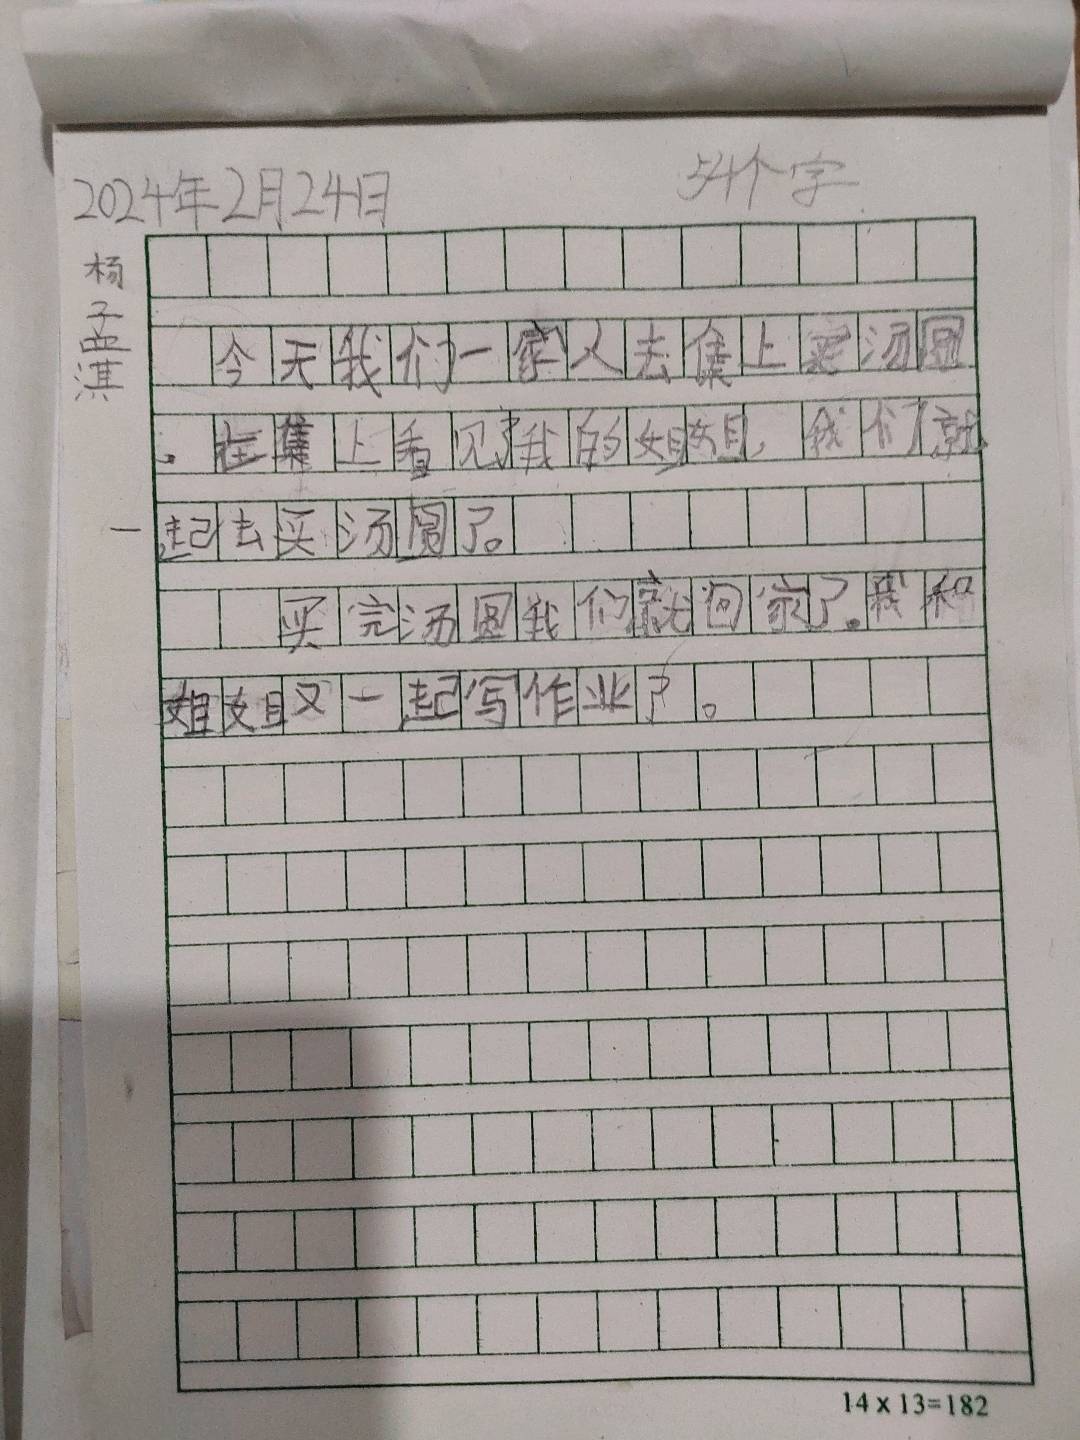 2024年2月24日
54个字
杨孟淇
今天我们一家人去集上买汤圆
。在集上看见了我的姐姐，我们就
一起去买汤圆了。
买完汤圆我们就回家了。我和
姐姐又一起写作业了。
14×13=182